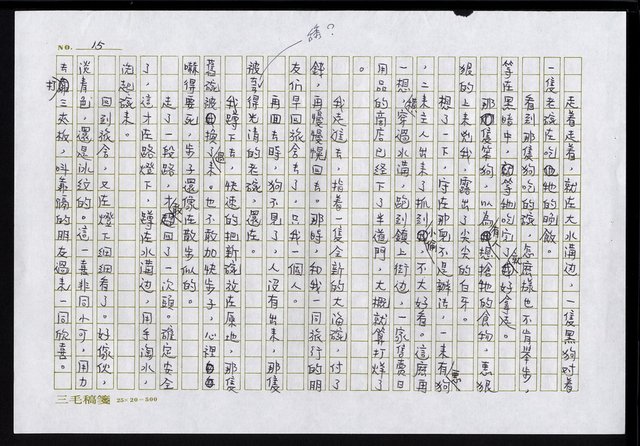 NO. 15
錄？
走着走着，就在大水溝邊，一隻黑狗對着
一隻老碗在吃牠的晚飯。
看到那隻狗的碗，怎麼樣也不肯舉步，
等在黑暗中，等牠吃完了好拿走。
那隻笨狗，以為有人想搶牠的食物，惡狠
狠的上來兇我，露出了尖尖的白牙。
想了一下，守在那兒不是辦法，一來有惡狗
，二來主人出來了抓到小偷，不大好看。這麼再
一想，穿過水溝，跑到鎮上街邊，一家售賣日
用品的商店已經下了半邊門，大概就算打烊了
。
我走進去，指着一隻全新的大海碗，付了
錢，再慢慢晃回去。那時，和我一同旅行的朋
友們早回旅舍去了，只我一個人。
再回去時，狗不見了，人沒有出來，那隻
被舔得光清的老碗，還在。
我蹲下去，快速的把新碗放在原地，那隻
舊碗被換了過來。也不敢加快步子，心裡
嚇得要死，步子還像在散步似的。
走了一段路，才敢回了一次頭。確定安全
了，這才在路燈下，蹲在水溝邊，用手掏水，
洗起碗來。
回到旅舍，又在燈下細細看了。好傢伙，
淡青色，還是冰紋的。這一喜非同小可，用力
去打三夾板，叫義隔的朋友過來一同欣喜。
三毛稿箋 25×20=500